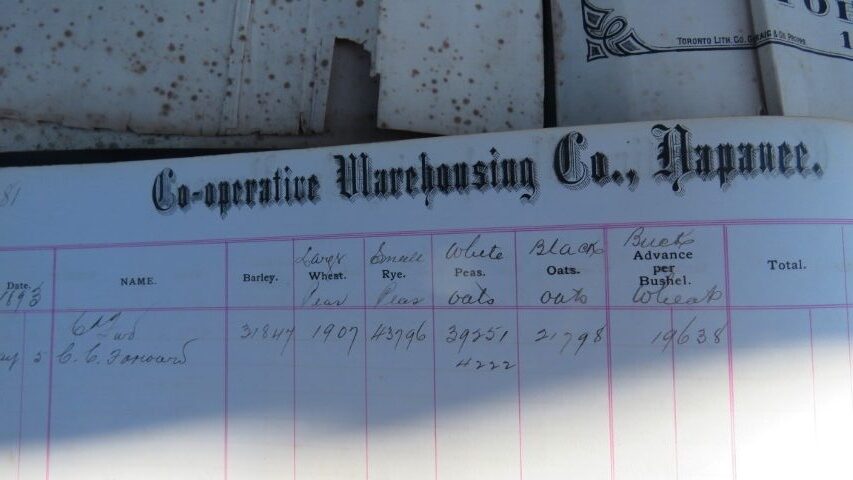 TORONTO LITH. CO.
81
Co-operative Warehousing Co., Napanee.
Date. NAME. Barley. Large Wheat. Peas Small Rye. Peas White Peas. oats Black Oats. oats Buck Advance per Bushel. Wheat Total.
1893
31847 1907 43796 39251 21798 19638
5 C. C. Forward 4222